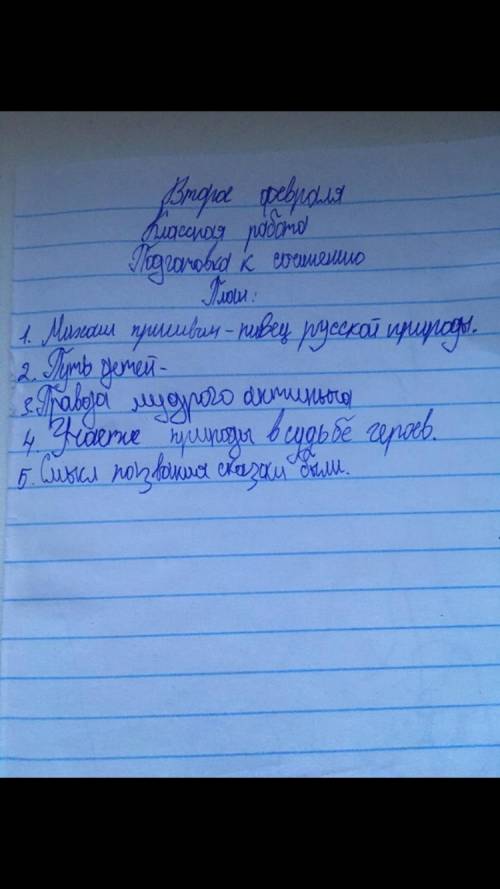 Второе февраля
Классная работа
Подготовка к сочинению
План:
1. Михаил пришвин - певец русской природы.
2. Путь детей-
3. Правда мудрого антипыча
4. Участие природы в судьбе героев.
5. Смысл названия сказки были.